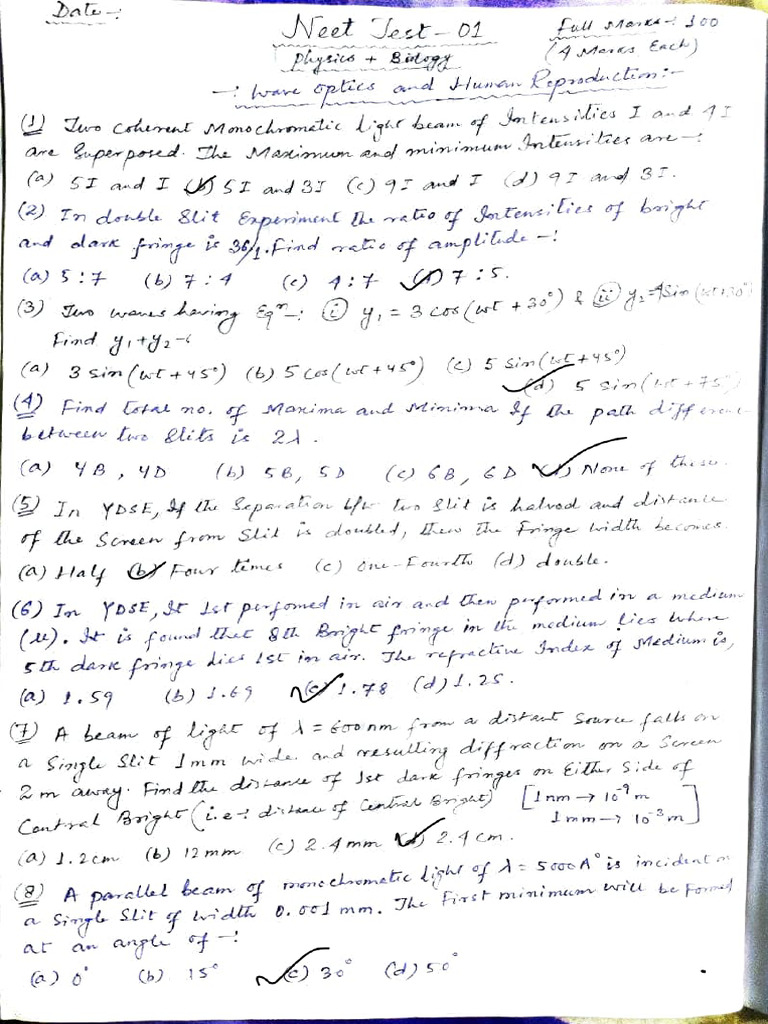 Date -:
Neet Test - 01
Full Marks -: 100
Physics + Biology
(4 Marks Each)
-: Wave optics and Human Reproduction :-
(1) Two coherent Monochromatic light beam of Intensities I and 4I
are Superposed. The Maximum and minimum Intensities are -:
(a) 5I and I (b) 5I and 3I (c) 9I and I (d) 9I and 3I.
(2) In double Slit Experiment the ratio of Intensities of bright
and dark fringe is 36/1. Find ratio of amplitude -:
(a) 5:7 (b) 7:4 (c) 4:7 (d) 7:5.
(3) Two waves having Eqⁿ -: (i) y₁ = 3 cos(wt + 30°) & (ii) y₂ = 4 Sin (wt+30°
Find y₁+y₂ -:
(a) 3 sin(wt + 45°) (b) 5 cos(wt + 45°) (c) 5 sin(wt + 45°)
(d) 5 sin(wt + 75°
(4) Find total no. of Maxima and Minima If the path difference
between two Slits is 2λ.
(a) 4B, 4D (b) 5B, 5D (c) 6B, 6D (d) None of these.
(5) In YDSE, If the Separation b/w two Slit is halved and distance
of the Screen from Slit is doubled, then the Fringe width becomes.
(a) Half (b) Four times (c) One-Fourth (d) double.
(6) In YDSE, It 1st perfomed in air and then performed in a medium
(u). It is found that 8th Bright fringe in the medium lies where
5th dark fringe lies 1st in air. The refractive Index of Medium is,
(a) 1.59 (b) 1.69 (c) 1.78 (d) 1.25.
(7) A beam of light of λ = 600 nm from a distant Source falls on
a Single Slit 1mm wide. and resulting diffraction on a Screen
2 m away. Find the distance of 1st dark fringes on Either Side of
Central Bright (i.e : distance of Central Bright) [1nm → 10⁻⁹ m
1mm → 10⁻³ m]
(a) 1.2 cm (b) 12 mm (c) 2.4 mm (d) 2.4 cm.
(8) A parallel beam of monochromatic light of λ = 5000 A° is incident on
a Single Slit of width 0.001 mm. The First minimum will be Formed
at an angle of -:
(a) 0° (b) 15° (c) 30° (d) 50°